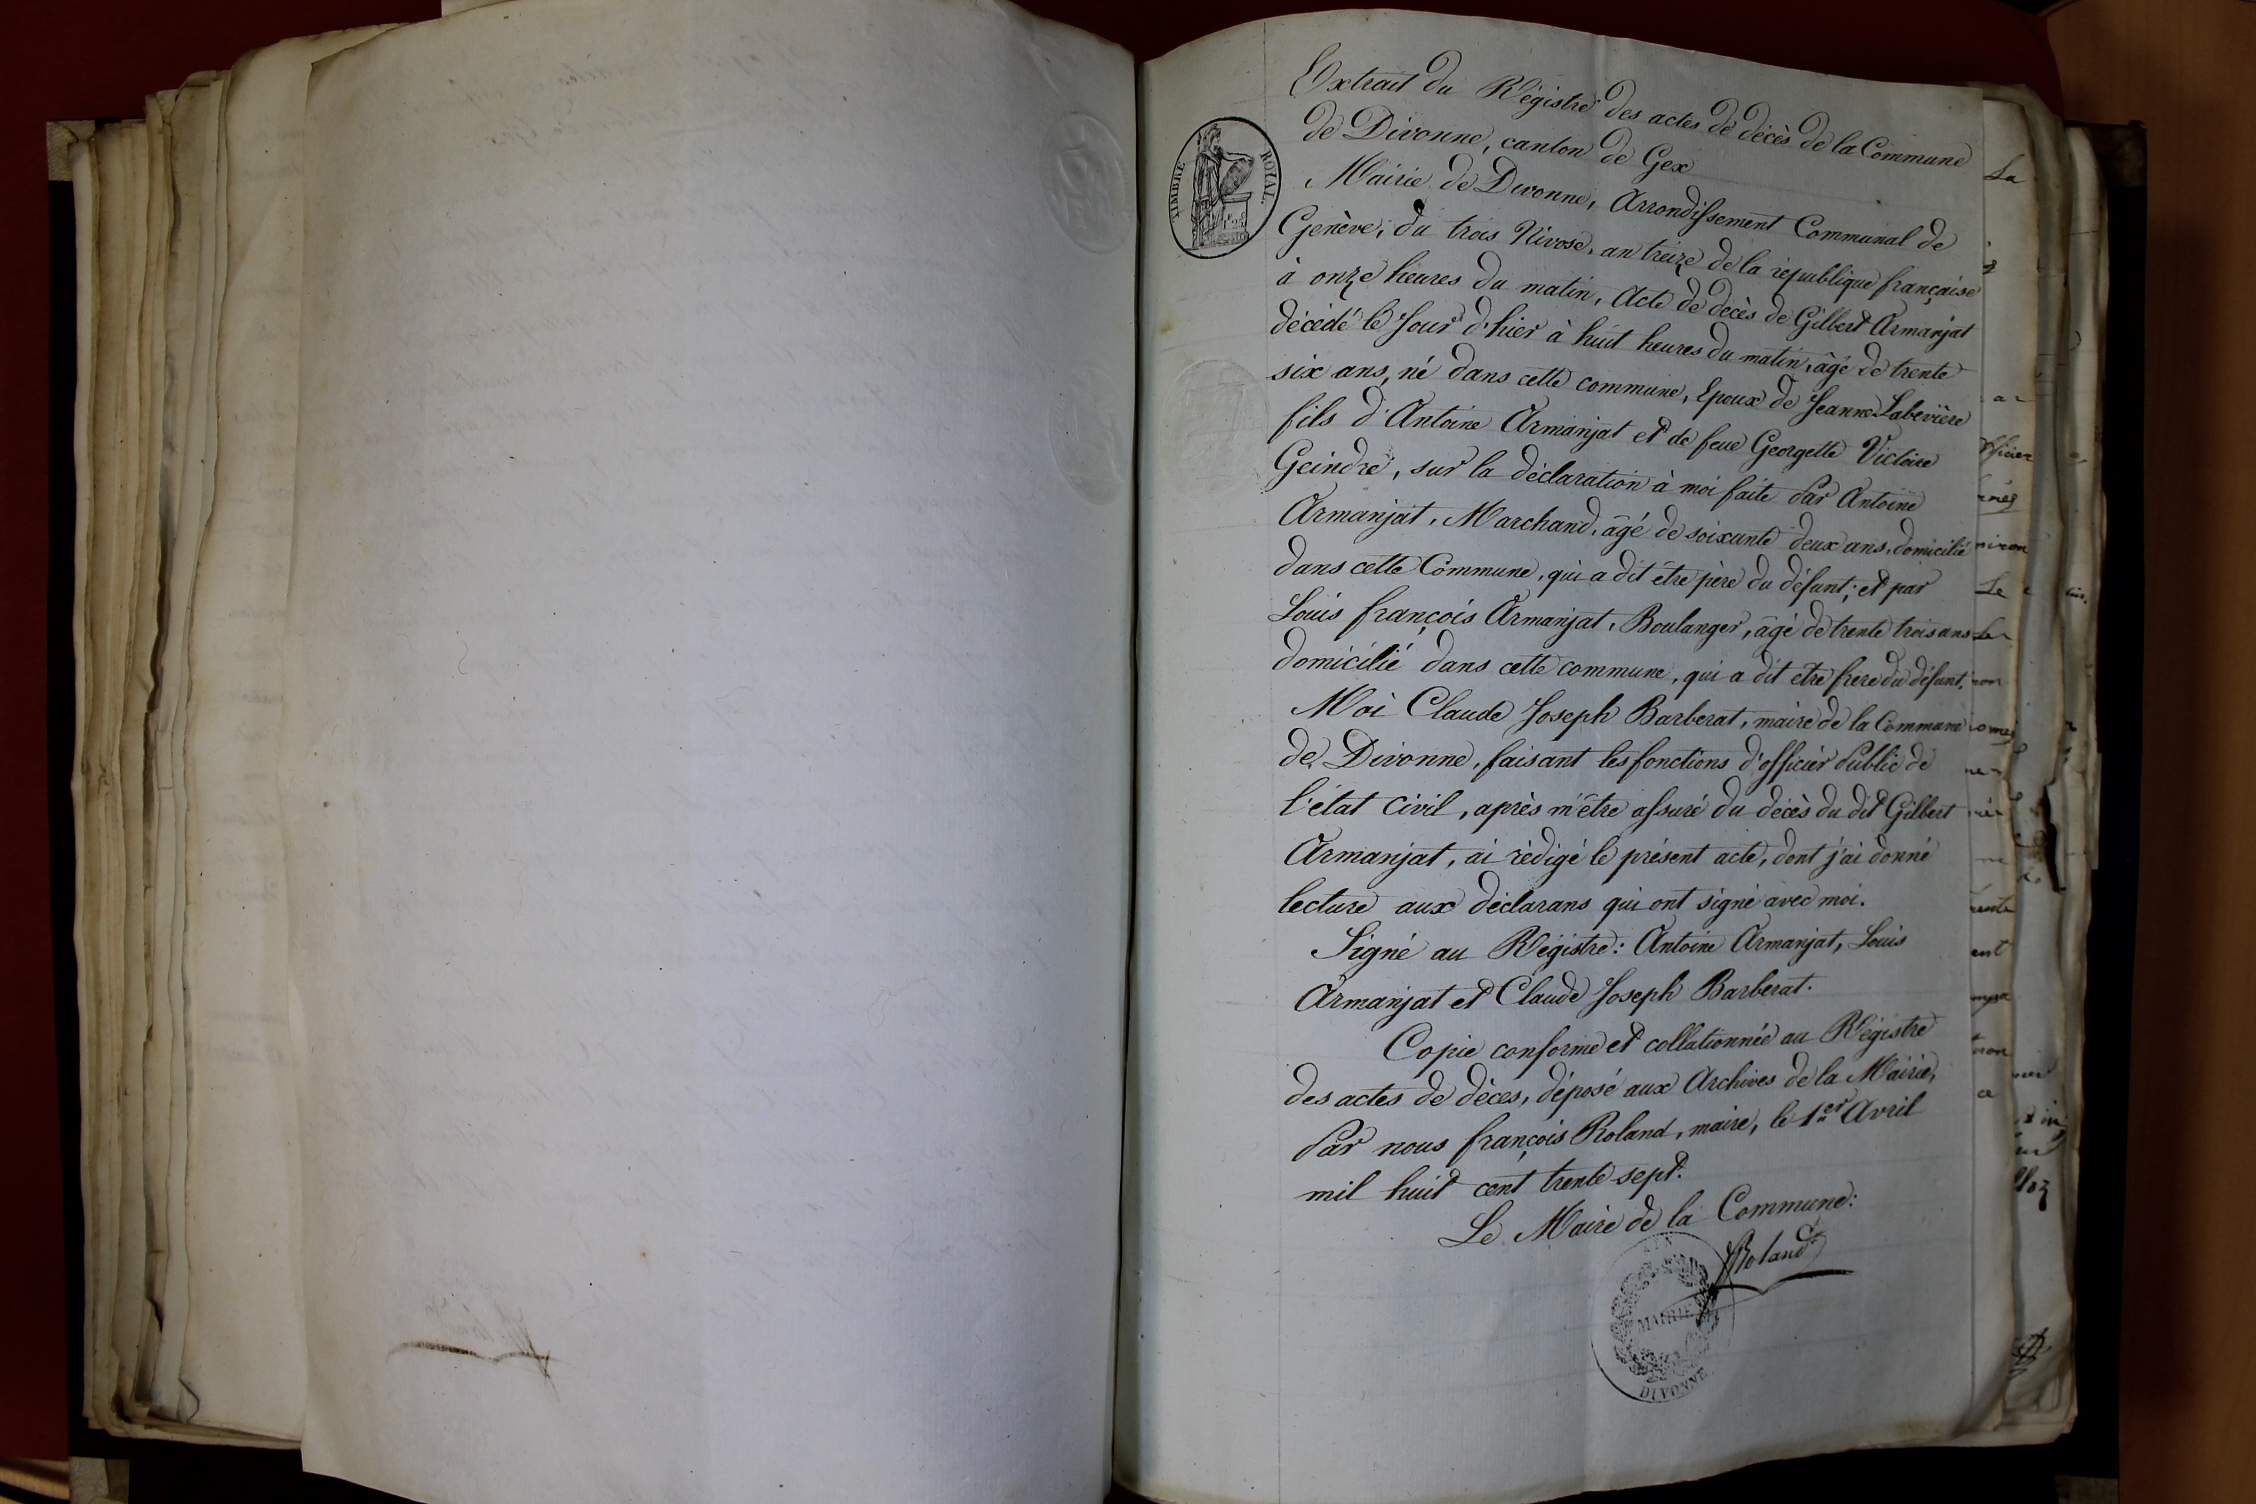 Extrait du Régistre des actes de décès de la Commune
de Divonne, canton de Gex
TIMBRE ROYAL.
Mairie de Divonne, Arrondissement Communal de
Genève, du trois Nivose, an treize de la république française
à onze heures du matin, Acte de décès de Gilbert Armanjat
décédé le Jour d'hier à huit heures du matin, âgé de trente
six ans, né dans cette commune, Epoux de Jeanne Labevière
fils d'Antoine Armanjat et de feue Georgette Victoire
Geindre, sur la déclaration à moi faite Par Antoine
Armanjat, Marchand, âgé de soixante deux ans, domicilié
dans cette Commune, qui a dit être père du défunt; et par
Louis françois Armanjat, Boulanger, âgé de trente trois ans
domicilié dans cette commune, qui a dit etre frere du défunt,
Moi Claude Joseph Barberat, maire de la Commune
de Divonne, faisant les fonctions d'officier Public de
l'état civil, après m'être assuré du décès du dit Gilbert
Armanjat, ai rédigé le présent acte, dont j'ai donné
lecture aux déclarans qui ont signé avec moi.
Signé au Régistre: Antoine Armanjat, Louis
Armanjat et Claude Joseph Barberat.
Copie conforme et collationnée au Régistre
des actes de décès, déposé aux Archives de la Mairie,
Par nous françois Roland, maire, le 1er Avril
mil huit cent trente sept.
Le Maire de la Commune:
Roland
MAIRIE DE
DIVONNE